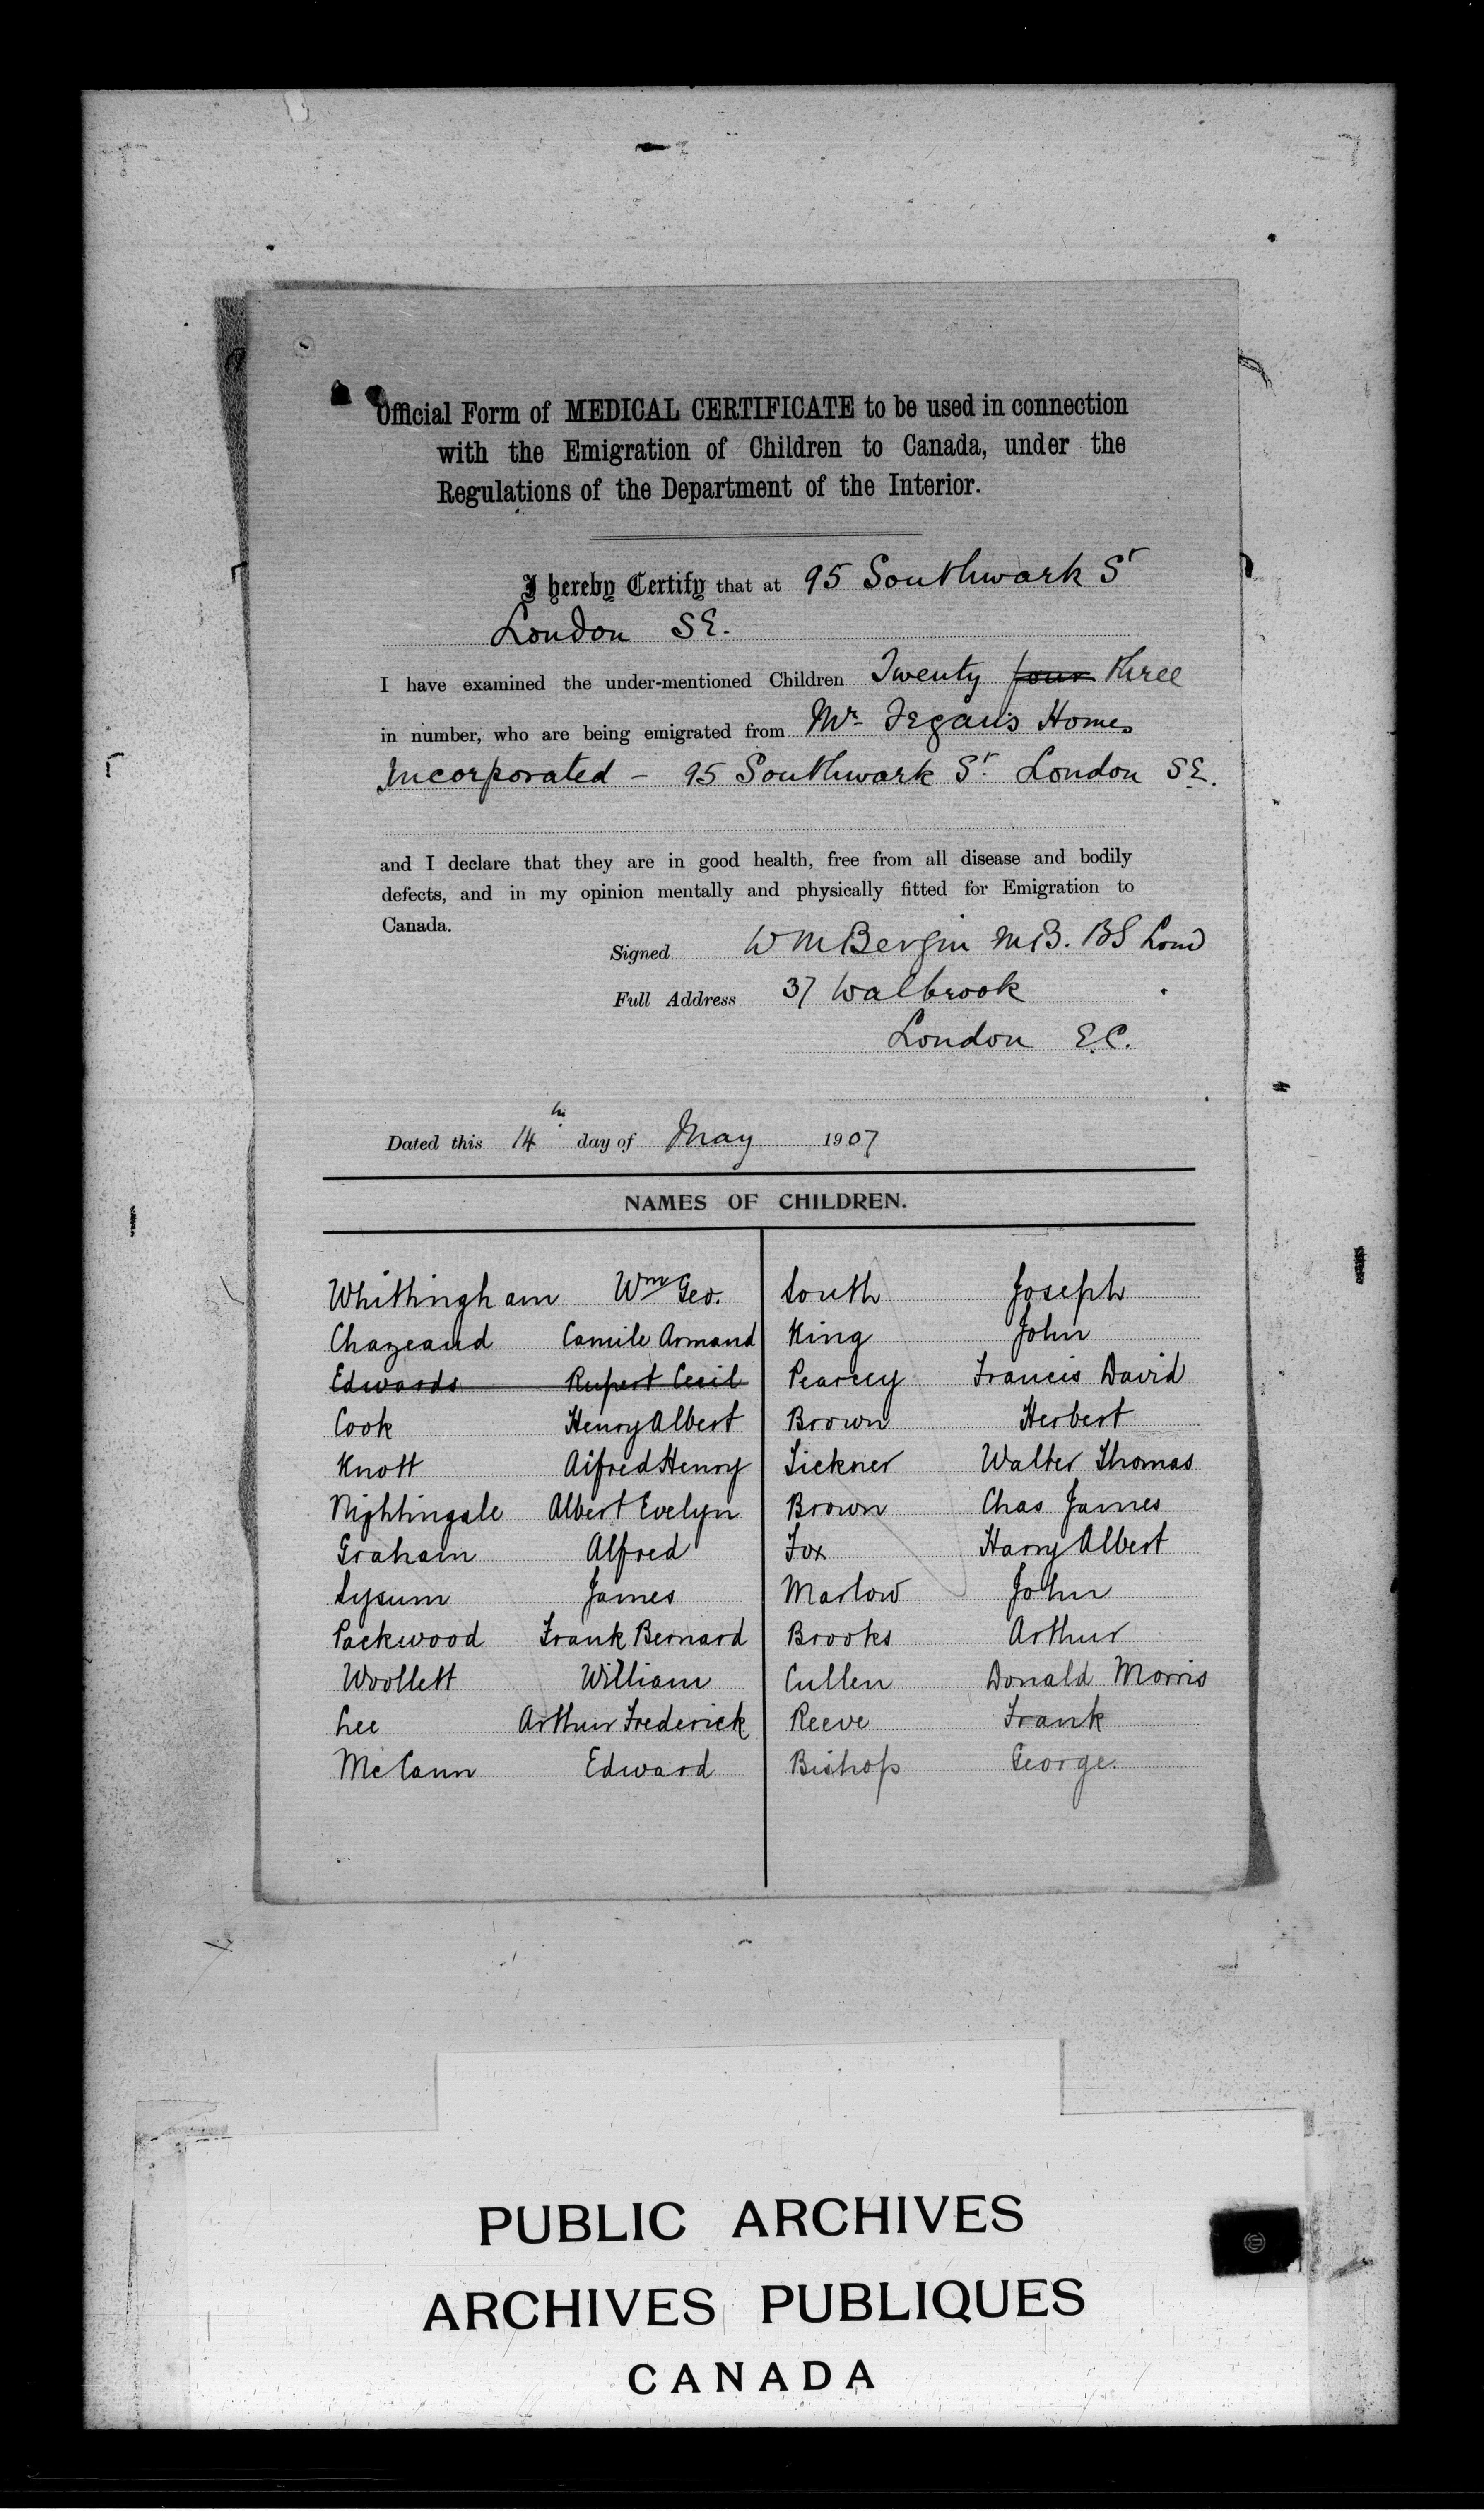 Official Form of MEDICAL CERTIFICATE to be used in connection
with the Emigration of Children to Canada, under the
Regulations of the Department of the Interior.
I hereby Certify that at 95 Southwark St
London SE.
I have examined the under-mentioned Children Twenty four three
in number, who are being emigrated from Mr. Fegan's Homes
Incorporated - 95 Southwark St. London S.E.
and I declare that they are in good health, free from all disease and bodily
defects, and in my opinion mentally and physically fitted for Emigration to
Canada.
Signed W M Bergin M.B. BS Lond
Full Address 37 Walbrook
London E.C.
Dated this 14th day of May 1907
NAMES OF CHILDREN.
Whittingham Wm Geo.
Chazeaud Camile Armand
Edwards Rupert Cecil
Cook Henry Albert
Knott Alfred Henry
Nightingale Albert Evelyn
Graham Alfred
Lysum James
Packwood Frank Bernard
Woollett William
Lee Arthur Frederick
McCann Edward
South Joseph
King John
Pearcey Francis David
Brown Herbert
Tickner Walter Thomas
Brown Chas James
Fox Harry Albert
Marlow John
Brooks Arthur
Cullen Donald Morris
Reeve Frank
Bishop George.
PUBLIC ARCHIVES
ARCHIVES PUBLIQUES
CANADA